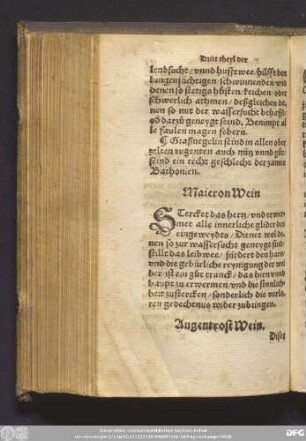 Dritt theyl der
lendsucht / vnnd hufft wee / hilfft den
lungensüchtigen / schwinnenden / vnd
denen so stetigs hůsten / keichen / oder
schwerlich athmen / deßgleichen de
nen so mit der wassersucht behafft /
od darzů geneygt seind. Benimpt al
le faulen magen febern.
¶ Graßnegelin seind in allen obge
zelten tugenten auch nütz vnnd gůt /
seind ein recht geschlecht der zamen
Bathonien.
Maieron Wein
STercket das hertz / vnd erwer
met alle innerliche glider des
eingeweydes / Dienet wol de
nen so zur wassersucht geneygt sind
stillt das leibwee / fürdert den harn
vnd die gebürliche reynigung der wei
ber / ist ein gůt tranck / das hirn vnnd
haupt zu erwermen / vnd die sinnlich
heit zustercken / sonderlich die verlo
ren gedechtnus wider zubringen.
Augentrost Wein.
Diser